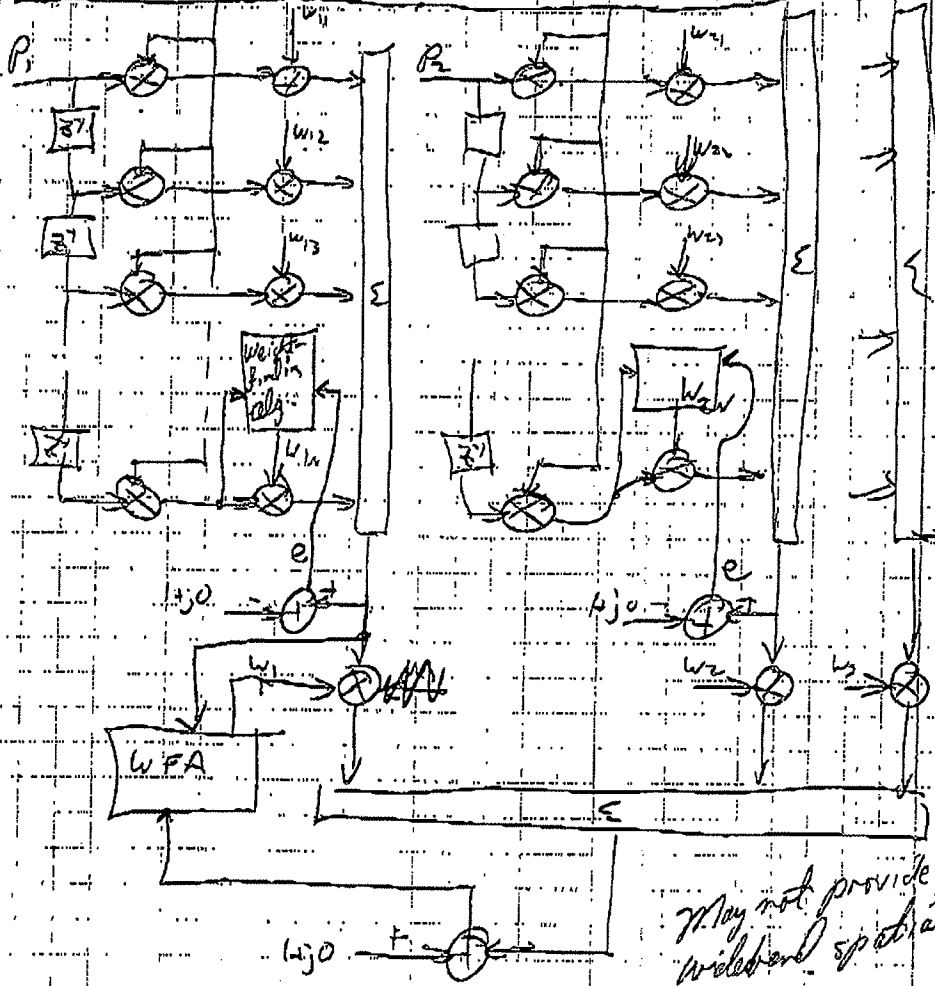 W11
P1
W12
W13
Σ
Weight-
finding
alg.
W1N
e
1+j0
-
+
W1
WFA
P2
W21
W22
W23
Σ
W2N
e
1+j0
-
+
W2
Σ
W3
Σ
1+j0
+
-
May not provide
wideband spatia